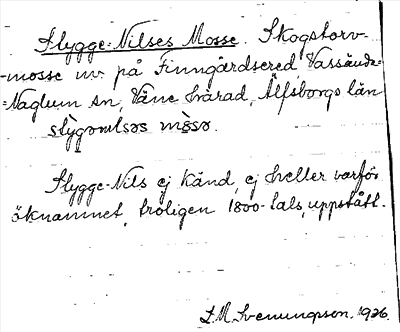 Stygge-Nilses Mosse. Skogstorv-
-mosse nv. på Finngärdsered, Vassända-
=Naglum sn, Väne härad, Älfsborgs län
stỳgənɩlsəs mòsə.
Stygge-Nils ej känd, ej heller varför
öknamnet, troligen 1800-tals, uppstått.
L. M. Svenungsson. 1926.